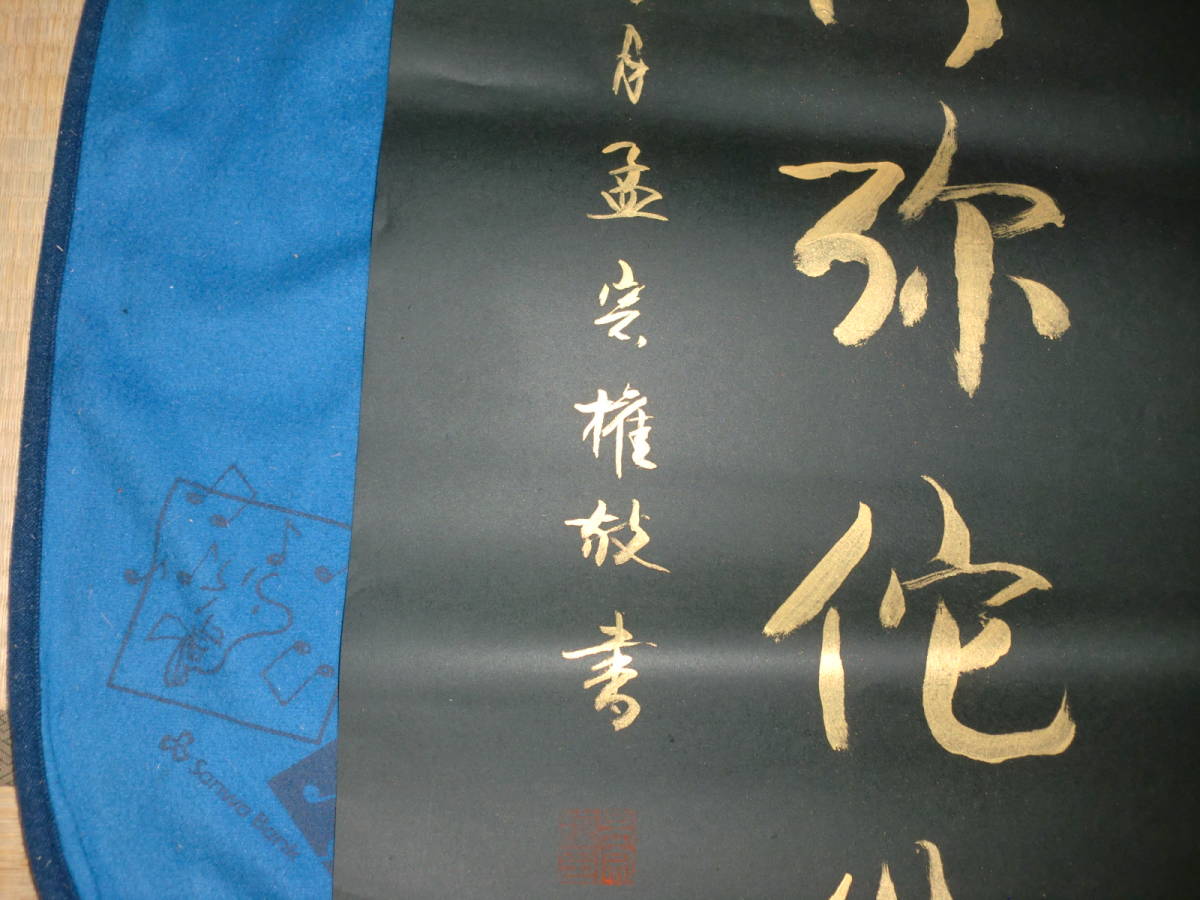 弥佗
月孟宾権敬書
Sanwa Bank